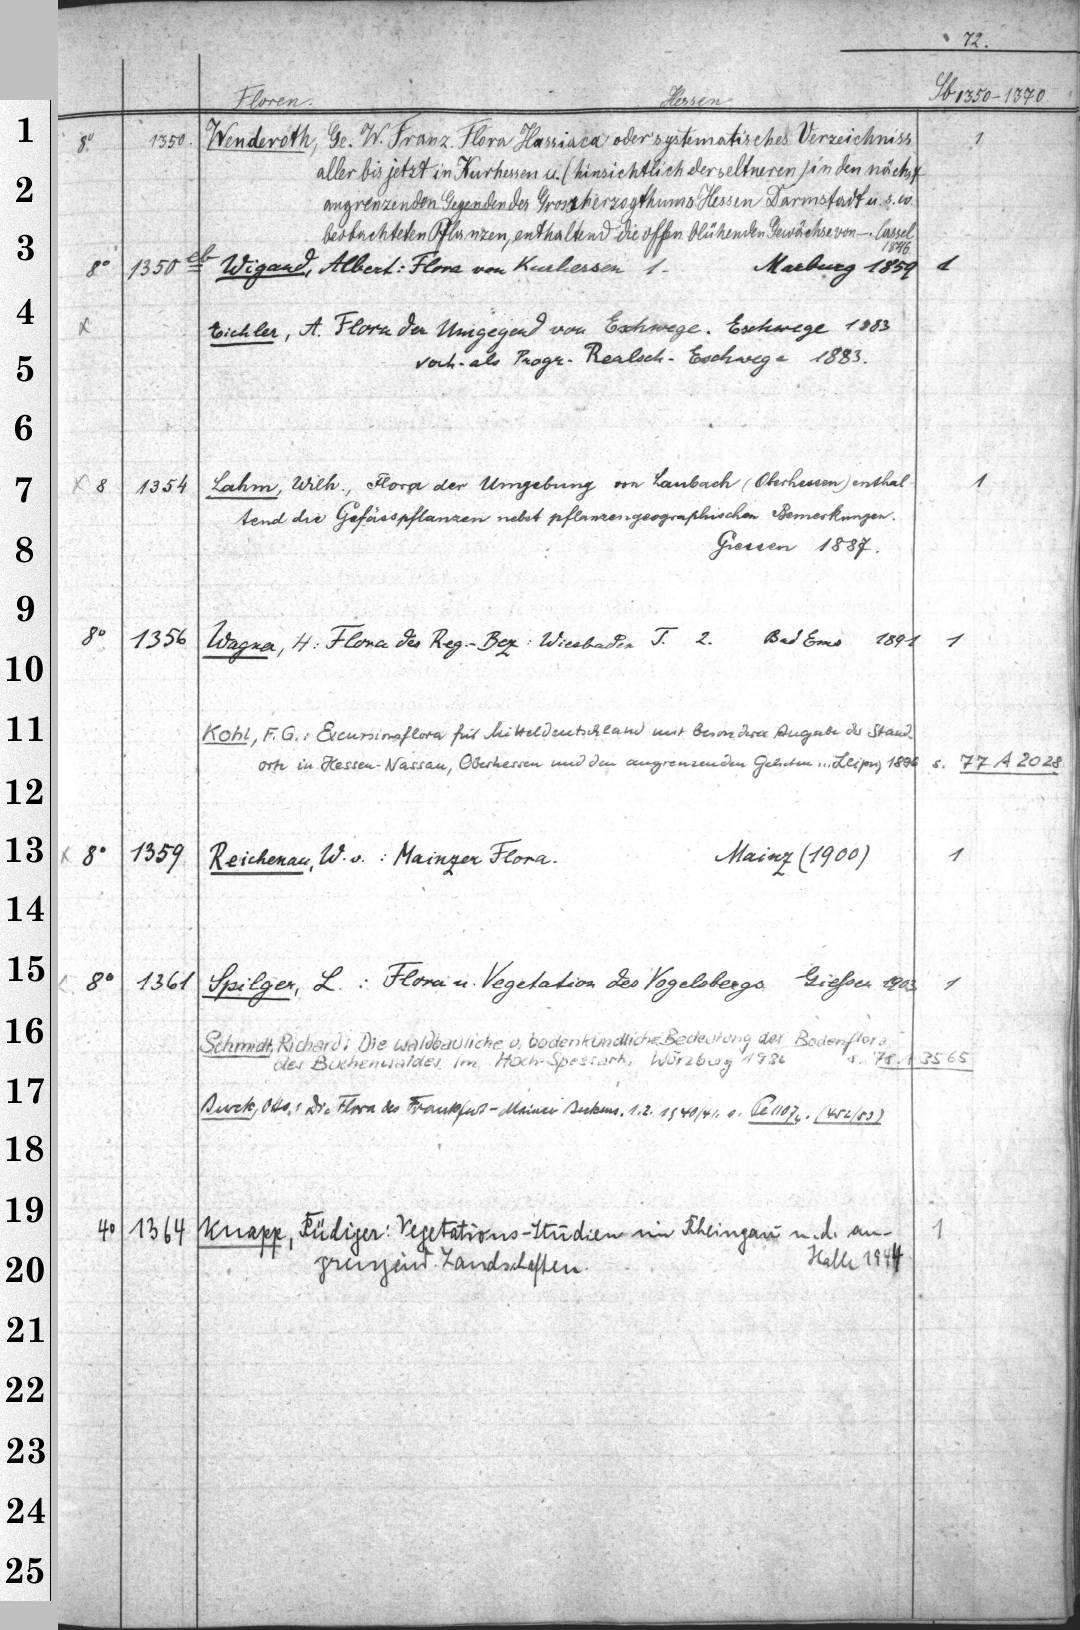 72.
Floren. Hessen Sb 1350-1370
1
8° 1350. Wenderoth, Ge. W. Franz. Flora Hassiaca oder systematisches Verzeichniss 1
2
aller bis jetzt in Kurhessen u. (hinsichtlich der seltneren) in den nächst
angrenzenden Gegenden des Grossherzogthums Hessen Darmstadt u. s. w.
3
beobachteten Pflanzen, enthaltend die offen blühenden Gewächse von —. Cassel
1846
8° 1350 eb Wigand, Albert: Flora von Kurhessen 1. Marburg 1859 1
4
x Eichler, A. Flora der Umgegend von Eschwege. Eschwege 1883
5
als Progr. Realsch. Eschwege 1883.
6
7
x 8 1354 Lahm, Wilh., Flora der Umgebung von Laubach (Oberhessen) enthal- 1
tend die Gefässpflanzen nebst pflanzengeographischen Bemerkungen.
8
Giessen 1887.
9
8° 1356 Wagner, H: Flora des Reg.-Bez: Wiesbaden T. 2. Bad Ems 1891 1
10
11
Kohl, F.G.: Excursionsflora für Mitteldeutschland mit besondrer Angabe der Stand
orte in Hessen-Nassau, Oberhessen und den angrenzenden Gebieten ... Leipzig 1896 s. 77 A 2028
12
13
x 8° 1359 Reichenau, W. v. : Mainzer Flora. Mainz (1900) 1
14
15
x 8° 1361 Spilger, L. : Flora u. Vegetation des Vogelsbergs Gießen 1903 1
16
Schmidt, Richard: Die waldbauliche u. bodenkundliche Bedeutung der Bodenflora
des Buchenwaldes im Hoch-Spessart. Würzburg 1936 s. 78.A 3565
17
Burck, Otto: Die Flora des Frankfurt-Mainzer Beckens. 1.2. 1940/41. s. (452/83)
18
19
4° 1364 Knapp, Rüdiger: Vegetations-Studien im Rheingau u. d. an- 1
grenzend. Landschaften. Halle 1944
20
21
22
23
24
25